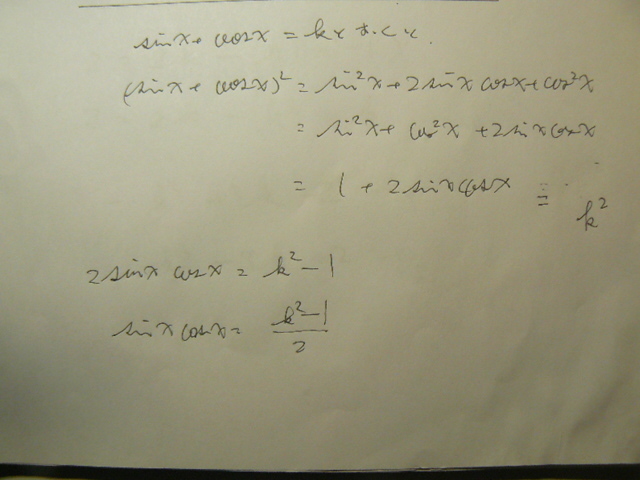 sinx + cosx = kとおくと
(sinx + cosx)² = sin²x + 2sinx cosx + cos²x
= sin²x + cos²x + 2sinxcosx
= 1 + 2sinxcosx = k²
2sinx cosx = k² - 1
sinxcosx = (k² - 1)/2